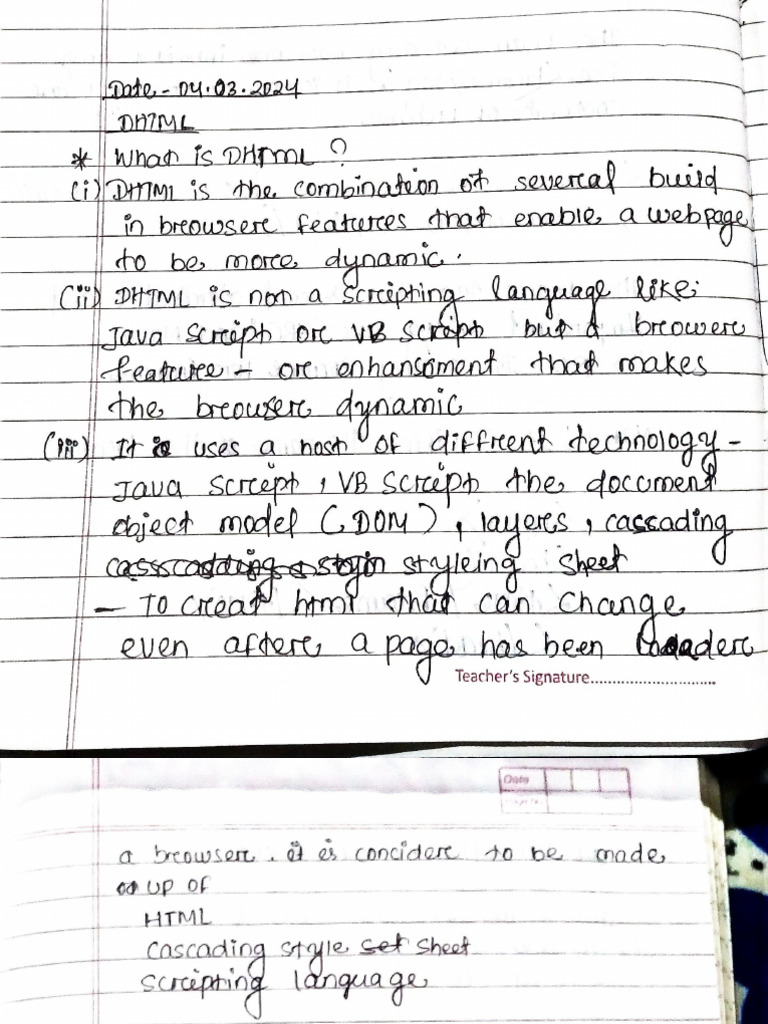 Date - 04.03.2024
DHTML
* What is DHTML ?
(i) DHTML is the combination of several build
in browser features that enable a webpage
to be more dynamic.
(ii) DHTML is not a scripting language like
Java script or VB script but a browere
feature - or enhansment that makes
the browser dynamic
(iii) It is uses a host of diffrent technology -
Java script, VB script the document
object model (DOM), layers, cascading
styleing sheet
- To creat html that can change
even after a page has been
Teacher's Signature..............................
Date
a browser. it is concider to be made
up of
HTML
Cascading style set sheet
scripting language